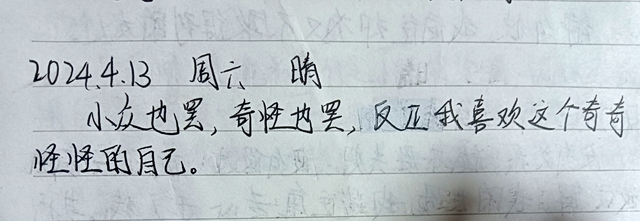 2024.4.13 周六 晴
小众也罢,奇怪也罢,反正我喜欢这个奇奇
怪怪的自己。